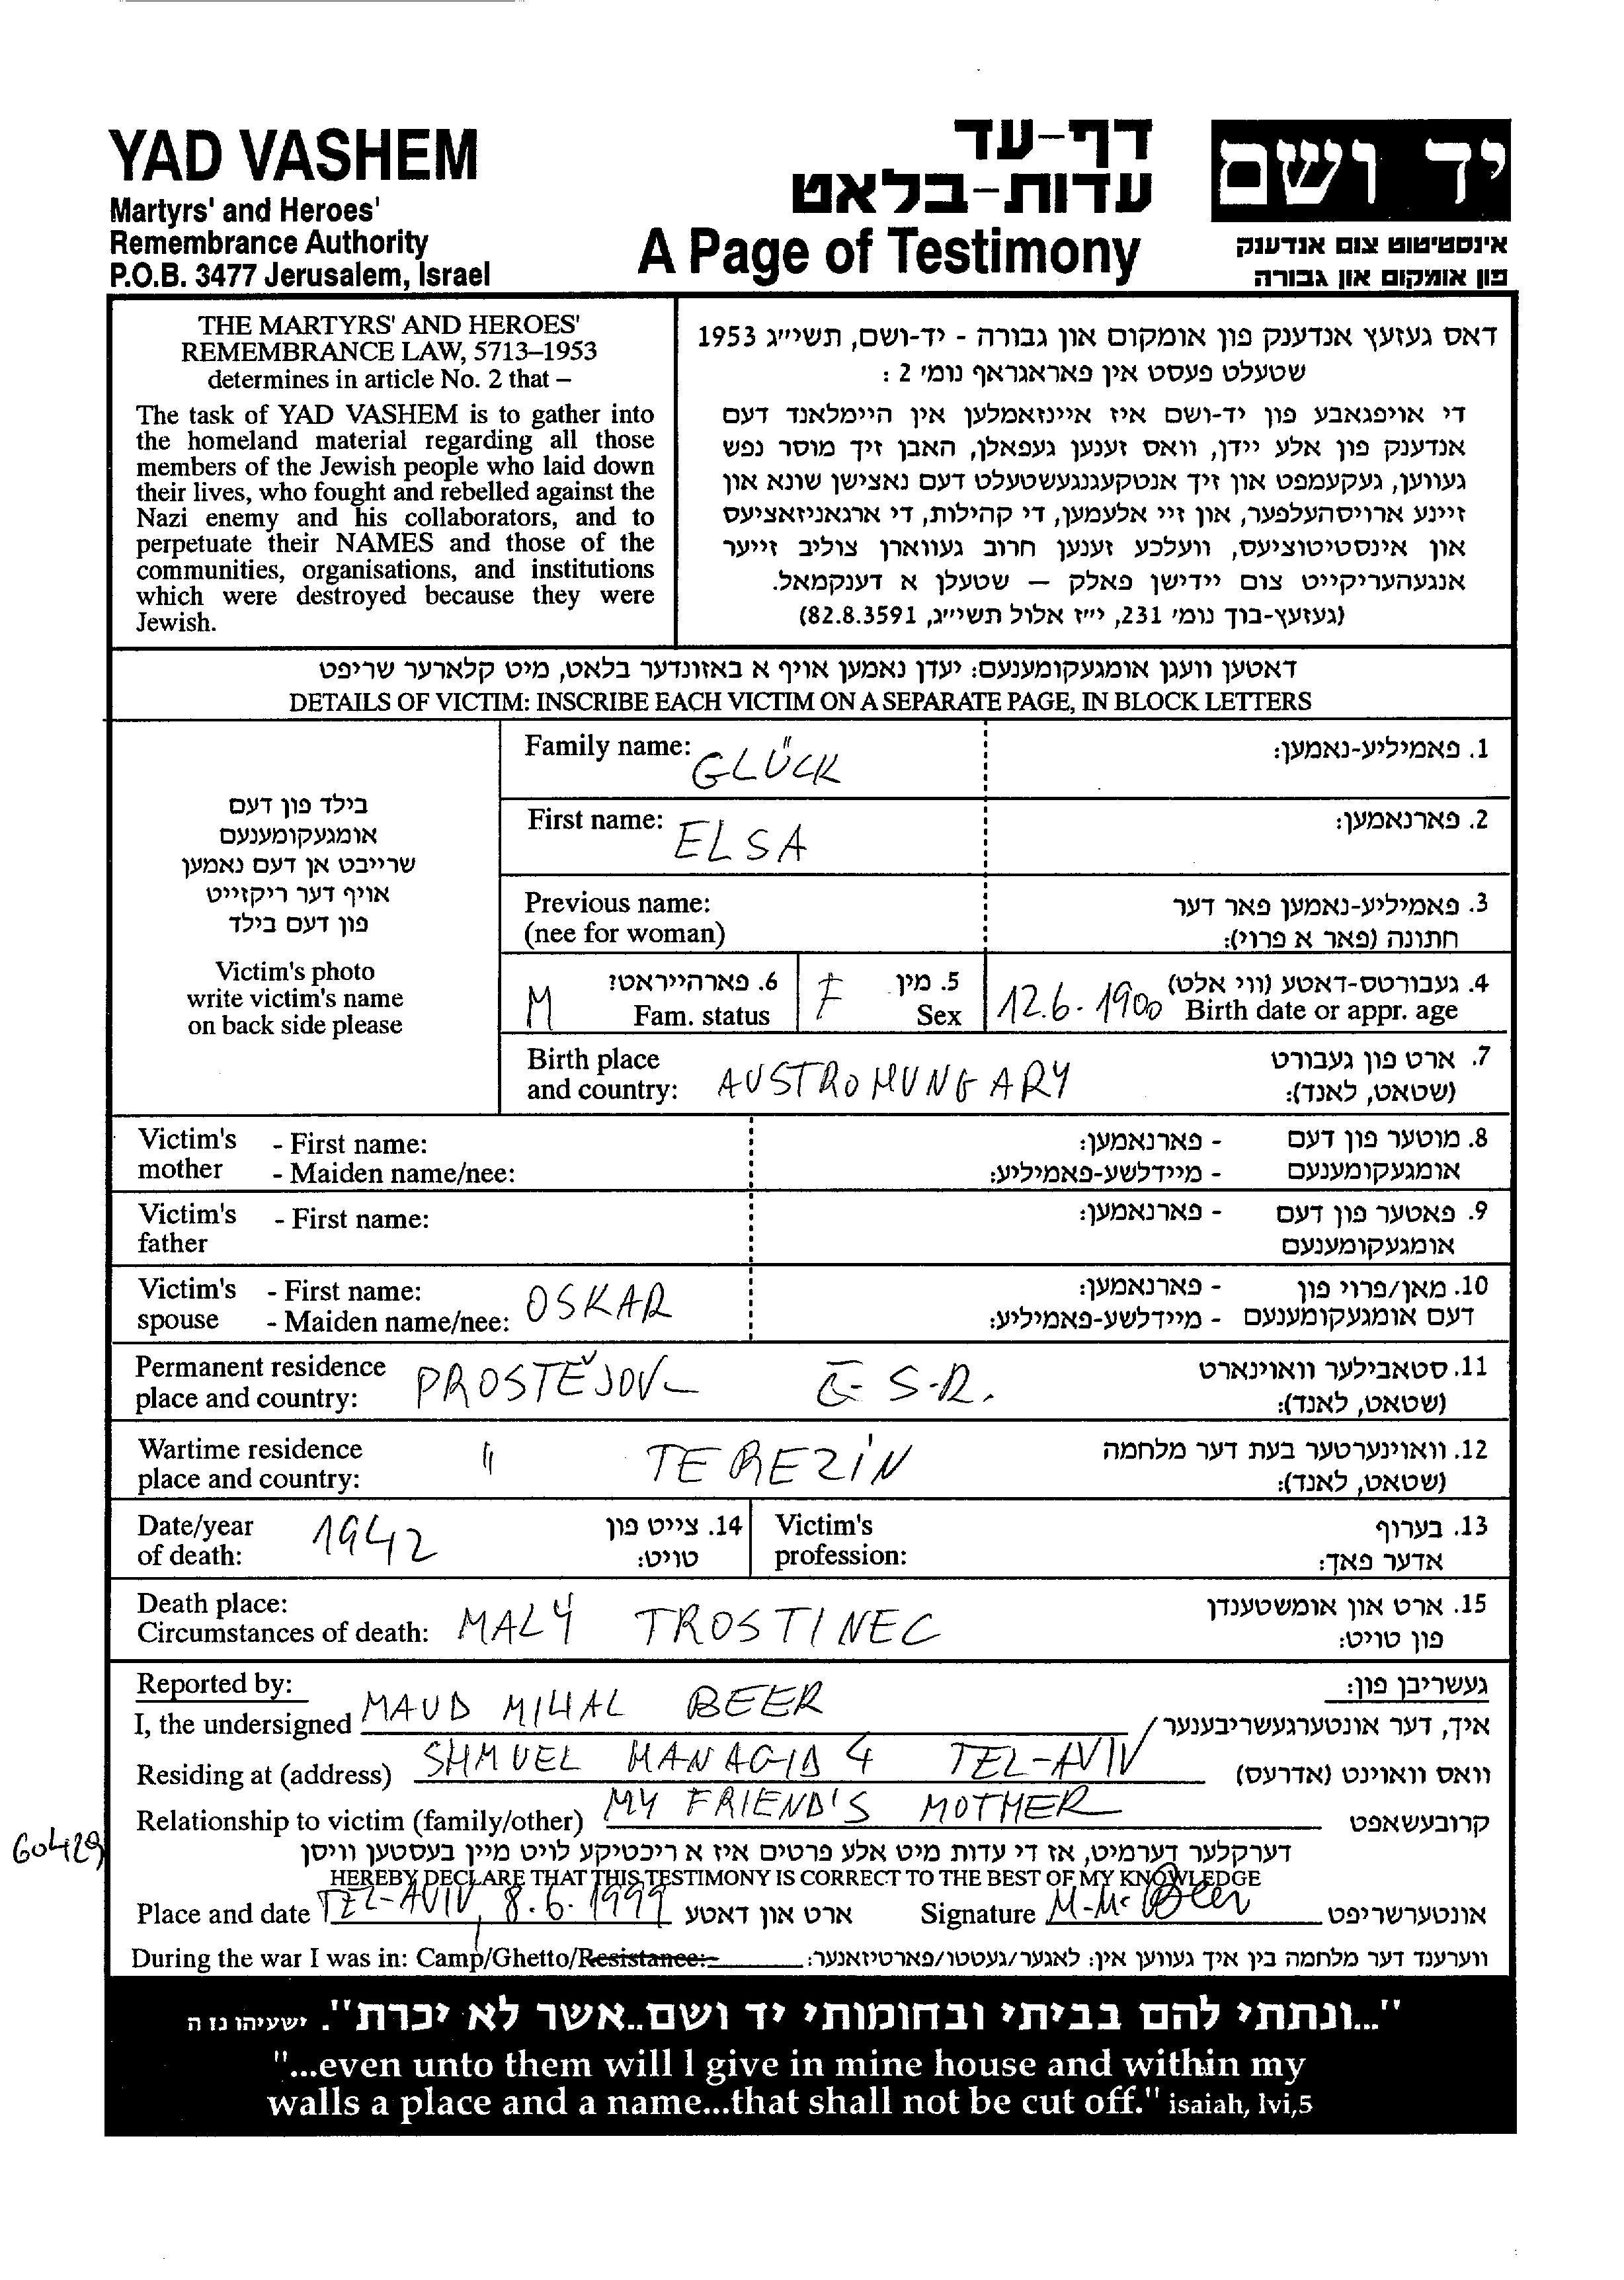 YAD VASHEM
Martyrs' and Heroes'
Remembrance Authority
P.O.B. 3477 Jerusalem, Israel
דף-עד
עדות-בלאט
A Page of Testimony
יד ושם
אינסטיטוט צום אנדענק
פון אומקום און גבורה
THE MARTYRS' AND HEROES'
REMEMBRANCE LAW, 5713–1953
determines in article No. 2 that –
The task of YAD VASHEM is to gather into
the homeland material regarding all those
members of the Jewish people who laid down
their lives, who fought and rebelled against the
Nazi enemy and his collaborators, and to
perpetuate their NAMES and those of the
communities, organisations, and institutions
which were destroyed because they were
Jewish.
דאס געזעץ אנדענק פון אומקום און גבורה - יד-ושם, תשי״ג 1953
שטעלט פעסט אין פאראגראף נומ׳ 2 :
די אויפגאבע פון יד-ושם איז איינזאמלען אין היימלאנד דעם
אנדענק פון אלע יידן, וואס זענען געפאלן, האבן זיך מוסר נפש
געווען, געקעמפט און זיך אנטקעגנגעשטעלט דעם נאצישן שונא און
זיינע ארויסהעלפער, און זיי אלעמען, די קהילות, די ארגאניזאציעס
און אינסטיטוציעס, וועלכע זענען חרוב געווארן צוליב זייער
אנגעהעריקייט צום יידישן פאלק — שטעלן א דענקמאל.
(געזעץ-בוך נומ׳ 231, י״ז אלול תשי״ג, 82.8.3591)
דאטען וועגן אומגעקומענעם: יעדן נאמען אויף א באזונדער בלאט, מיט קלארער שריפט
DETAILS OF VICTIM: INSCRIBE EACH VICTIM ON A SEPARATE PAGE, IN BLOCK LETTERS
בילד פון דעם
אומגעקומענעם
שרייבט אן דעם נאמען
אויף דער ריקזייט
פון דעם בילד
Victim's photo
write victim's name
on back side please
Family name: GLÜCK 1. פאמיליע-נאמען:
First name: ELSA 2. פארנאמען:
Previous name: 3. פאמיליע-נאמען פאר דער
(nee for woman) חתונה (פאר א פרוי):
M 6. פארהייראט? F 5. מין 12.6.1900 4. געבורטס-דאטע (ווי אלט)
Fam. status Sex Birth date or appr. age
Birth place 7. ארט פון געבורט
and country: AUSTROHUNGARY (שטאט, לאנד):
Victim's - First name: - פארנאמען: 8. מוטער פון דעם
mother - Maiden name/nee: - מיידלשע-פאמיליע: אומגעקומענעם
Victim's - First name: - פארנאמען: 9. פאטער פון דעם
father אומגעקומענעם
Victim's - First name: OSKAR - פארנאמען: 10. מאן/פרוי פון
spouse - Maiden name/nee: - מיידלשע-פאמיליע: דעם אומגעקומענעם
Permanent residence PROSTĚJOV Č-S-R. 11. סטאבילער וואוינארט
place and country: (שטאט, לאנד):
Wartime residence " TEREZÍN 12. וואוינערטער בעת דער מלחמה
place and country: (שטאט, לאנד):
Date/year 1942 14. צייט פון Victim's 13. בערוף
of death: טויט: profession: אדער פאך:
Death place: 15. ארט און אומשטענדן
Circumstances of death: MALÝ TROSTINEC פון טויט:
Reported by: געשריבן פון:
I, the undersigned MAUD MIHAL BEER איך, דער אונטערגעשריבענער
Residing at (address) SHMUEL HANAGID 4 TEL-AVIV וואס וואוינט (אדרעס)
Relationship to victim (family/other) MY FRIEND'S MOTHER קרובעשאפט
60429
דערקלער דערמיט, אז די עדות מיט אלע פרטים איז א ריכטיקע לויט מיין בעסטען וויסן
HEREBY DECLARE THAT THIS TESTIMONY IS CORRECT TO THE BEST OF MY KNOWLEDGE
Place and date TEL-AVIV, 8.6.1999 ארט און דאטע Signature M-M. Beer אונטערשריפט
During the war I was in: Camp/Ghetto/Resistance: ווערענד דער מלחמה בין איך געווען אין: לאגער/געטטו/פארטיזאנער:
"...ונתתי להם בביתי ובחומותי יד ושם..אשר לא יכרת". ישעיהו נז ה
"...even unto them will I give in mine house and within my
walls a place and a name...that shall not be cut off." isaiah, lvi,5